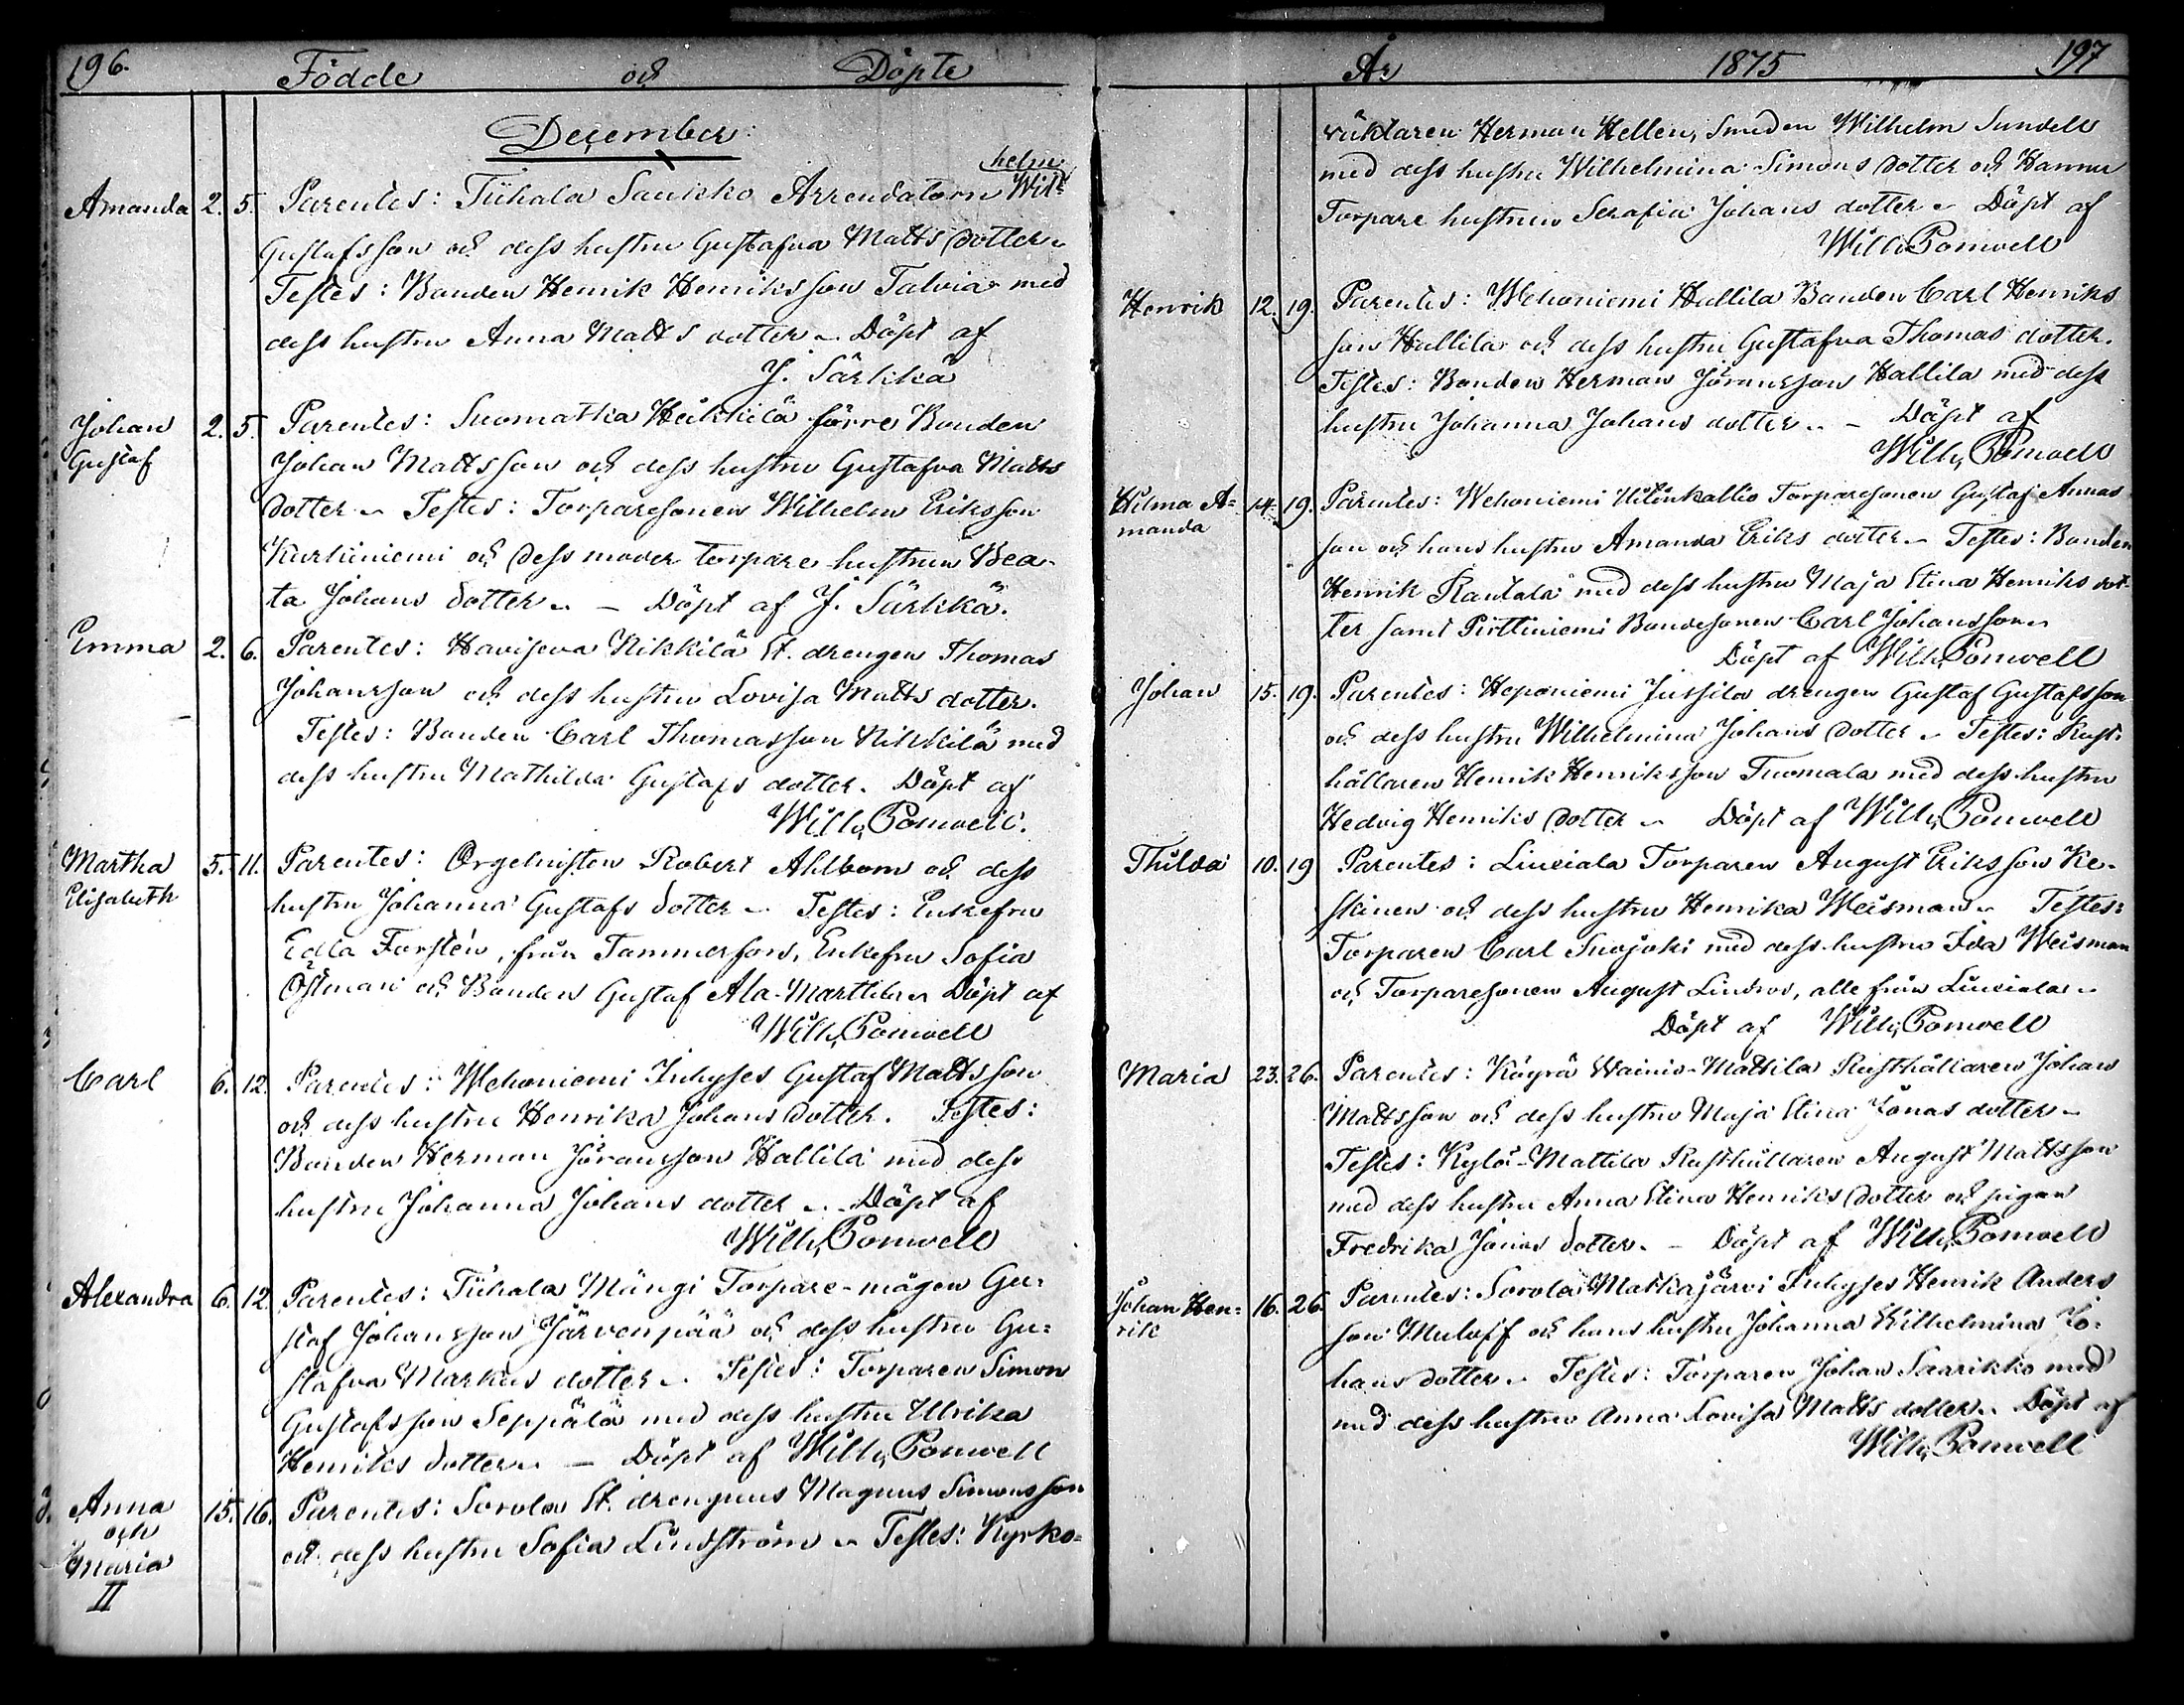 196.
Födde och Döpte
December
Amanda 2. 5. Parentes: Tiihala Saukko Arrendatorn Wil-
helm
Gustafsson och dess hustru Gustafva Matts dotter.
Testes: Bonden Henrik Henriksson Talvia med
dess hustru Anna Matts dotter. Döpt af
J. Särkkä
Johan 2. 5. Parentes: Suomatka Heikkilä förre Bonden
Gustaf
Johan Mattsson och dess hustru Gustafva Matts
dotter. Testes: Torparesonen Wilhelm Eriksson
Kurkiniemi och dess moder torpare hustrun Bea-
ta Johans dotter. – Döpt af J. Särkkä.
Emma 2. 6. Parentes: Haviseva Nikkilä St. drengen Thomas
Johansson och dess hustru Lovisa Matts dotter.
Testes: Bonden Carl Thomasson Nikkilä med
dess hustru Mathilda Gustafs dotter. Döpt af
Willh. Pomoell.
Martha 5. 11. Parentes: Orgelnisten Robert Ahlbom och dess
Elisabeth
hustru Johanna Gustafs dotter. Testes: Enkefru
Edla Forstén, från Tammerfors, Enkefru Sofia
Östman och Bonden Gustaf Ala-Marttila. Döpt af
Willh. Pomoell
Carl 6. 12. Parentes: Wehoniemi Inhyses Gustaf Mattsson
och dess hustru Henrika Johans dotter. Testes:
Bonden Herman Göransson Hallila med dess
hustru Johanna Johans dotter. Döpt af
Willh. Pomoell
Alexandra 6. 12. Parentes: Tiihala Mängi Torpare-mågen Gu-
staf Johansson Järvenpää och dess hustru Gu-
stafva Markus dotter. Testes: Torparen Simon
Gustafsson Seppälä med dess hustru Ulrika
Henriks dotter. – Döpt af Willh. Pomoell
Anna 15. 16. Parentes: Sorola St. drengens Magnus Simonsson
och
Maria
II
och dess hustru Sofia Lindström. Testes: Kyrko-
År 1875 197
wäktaren Herman Hellen, Smeden Wilhelm Sundell
med dess hustru Wilhelmina Simons dotter och
Torpare hustrun Serafia Johans dotter. Döpt af
Willh. Pomoell
Henrik 12. 19. Parentes: Wehoniemi Hallila Bonden Carl Henriks
son Hallila och dess hustru Gustafva Thomas dotter.
Testes: Bonden Herman Göransson Hallila med dess
hustru Johanna Johans dotter. – Döpt af
Willh. Pomoell
Hilma A- 14. 19. Parentes: Wehoniemi Torparesonen Gustaf
manda
son och hans hustru Amanda Eriks dotter. Testes: Bonden
Henrik Rautala med dess hustru Maja Stina Henriks dot-
ter samt Pirttiniemi Bondesonen Carl Johansson
Döpt af Willh. Pomoell
Johan 15. 19. Parentes: Heponiemi Jussila drengen Gustaf Gustafsson
och dess hustru Wilhelmina Johans dotter. Testes: Rust-
hållaren Henrik Henriksson Tuomala med dess hustru
Hedvig Henriks dotter. Döpt af Willh. Pomoell
Thilda 10. 19 Parentes: Liuksiala Torparen August Eriksson Ke-
skinen och dess hustru Henrika Weisman. Testes:
Torparen Carl Suojoki med dess hustru Ida Weisman
och Torparesonen August Lindros, alle från Liuksiala.
Döpt af Willh. Pomoell
Maria 23. 26. Parentes: Käyrä Wainio-Mattila Rusthållaren Johan
Mattsson och dess hustru Maja Stina Jonas dotter.
Testes: Kylä-Mattila Rusthållaren August Mattsson
med dess hustru Anna Stina Henriks dotter och pigan
Fredrika Jonas dotter. – Döpt af Willh. Pomoell
Johan Hen- 16. 26. Parentes: Sorola Matkajärvi Inhyses Henrik Anders
rik
son Muloff och hans hustru Johanna Wilhelmina Jo-
hans dotter. Testes: Torparen Johan Saarikko med
med dess hustru Anna Lovisa Matts dotter. Döpt af
Willh. Pomoell